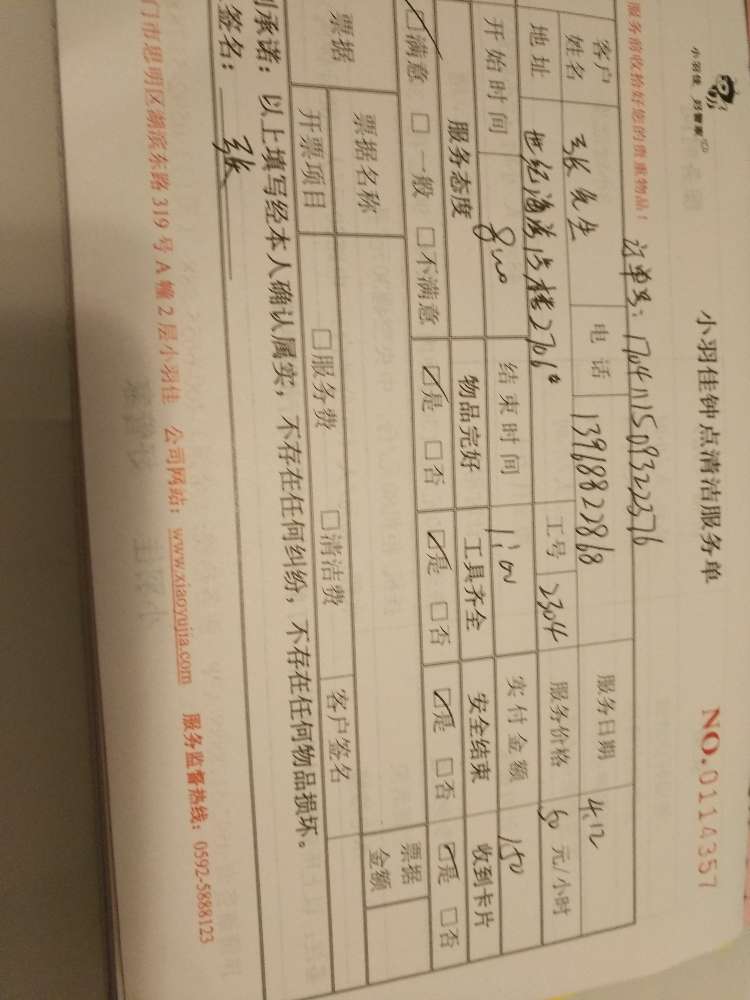 小羽佳 好管家
小羽佳钟点清洁服务单
NO.0114357
服务前收拾好您的贵重物品！
订单号：
客户姓名 张先生 电话 13968822868 服务日期 4.12
地址 世纪海湾15楼2706# 工号 2304 服务价格 50 元/小时
开始时间 8:00 结束时间 11:00 实付金额 150
服务态度 物品完好 工具齐全 安全结束 收到卡片
☑满意 □一般 □不满意 ☑是 □否 ☑是 □否 ☑是 □否 ☑是 □否
票据 票据名称 票据金额
开票项目 □服务费 □清洁费 客户签名
承诺：以上填写经本人确认属实，不存在任何纠纷，不存在任何物品损坏。
签名：张
门市思明区湖滨东路319号A幢2层小羽佳 公司网站：www.xiaoyujia.com 服务监督热线：0592-5888123